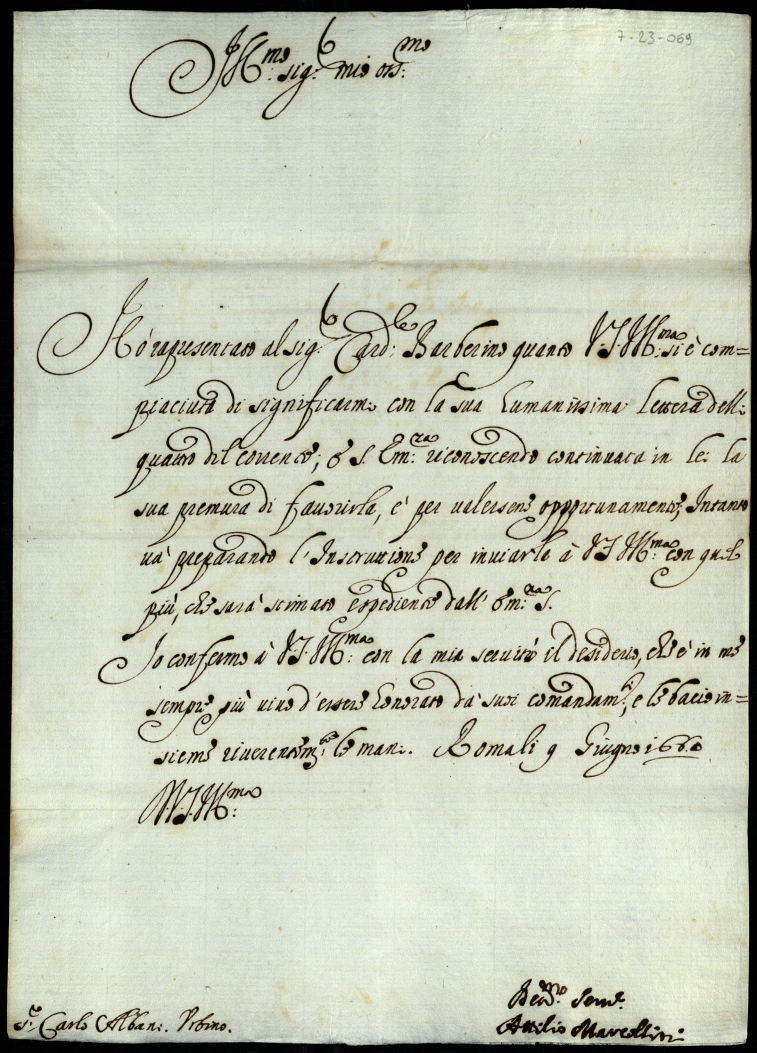 7-23-069
Ill.mo sig.r mio oss.mo
Hò rapresentato al sig.r Card.le Barberino quanto V.S. Ill.ma si è com=
piaciuta di significarmi con la sua humanissima lettera delli
quattro del corrente; e S. Em.za riconoscendo continuata in lei la
sua premura di fauorirla, è per ualersene opportunamente; Intanto
uà preparando l'Instruttione per inuiarla à V.S. Ill.ma con quel
più, che sarà stimato espediente dall' Em.za S.
Io confermo à V.S. Ill.ma con la mia seruitù il desiderio, che è in me
sempre più uiuo d'essere honorato da' suoi comandam.ti, e le bacio in=
sieme riuerentem.te le mani. Roma li 9 Giugno 1660
V.S. Ill.ma
S.r Carlo Albani. Vrbino.
Deu.mo Seru.e
Attilio Marcellini